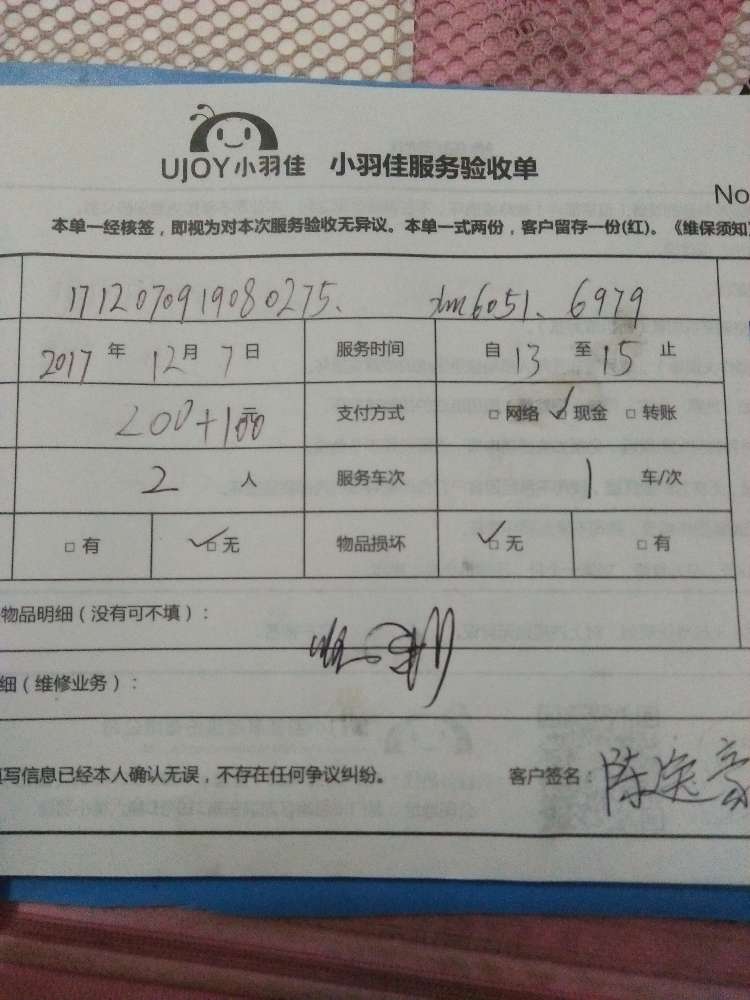 UJOY小羽佳 小羽佳服务验收单
No
本单一经核签，即视为对本次服务验收无异议。本单一式两份，客户留存一份(红)。《维保须知》
1712070919080275. xm6051. 6979
2017 年 12 月 7 日 服务时间 自 13 至 15 止
200+100 元 支付方式 □ 网络 ✓□ 现金 □ 转账
2 人 服务车次 1 车/次
□ 有 ✓□ 无 物品损坏 ✓□ 无 □ 有
物品明细（没有可不填）：
细（维修业务）：
填写信息已经本人确认无误，不存在任何争议纠纷。 客户签名：陈定豪